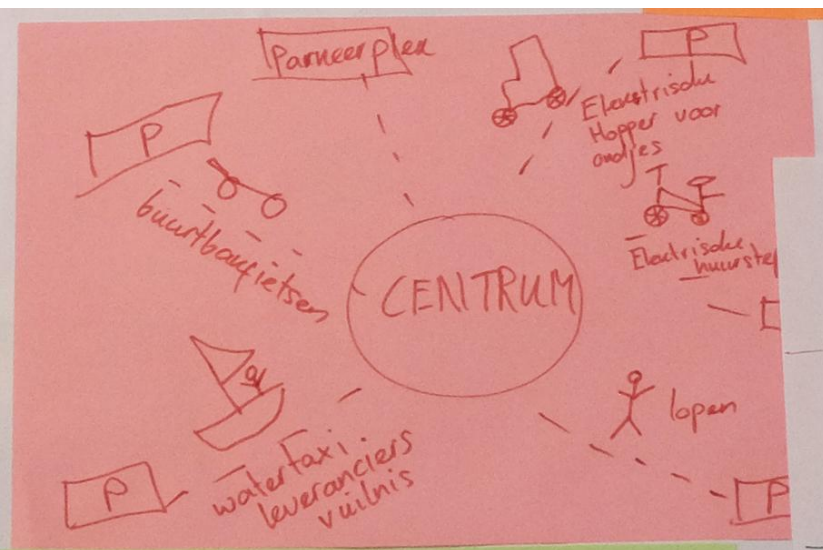 Parkeerplek
P
Elektrische
Hopper voor
oudjes
P
buurtbakfietsen
Elektrische
huurstep
CENTRUM
lopen
P
watertaxi
leveranciers
vuilnis
P